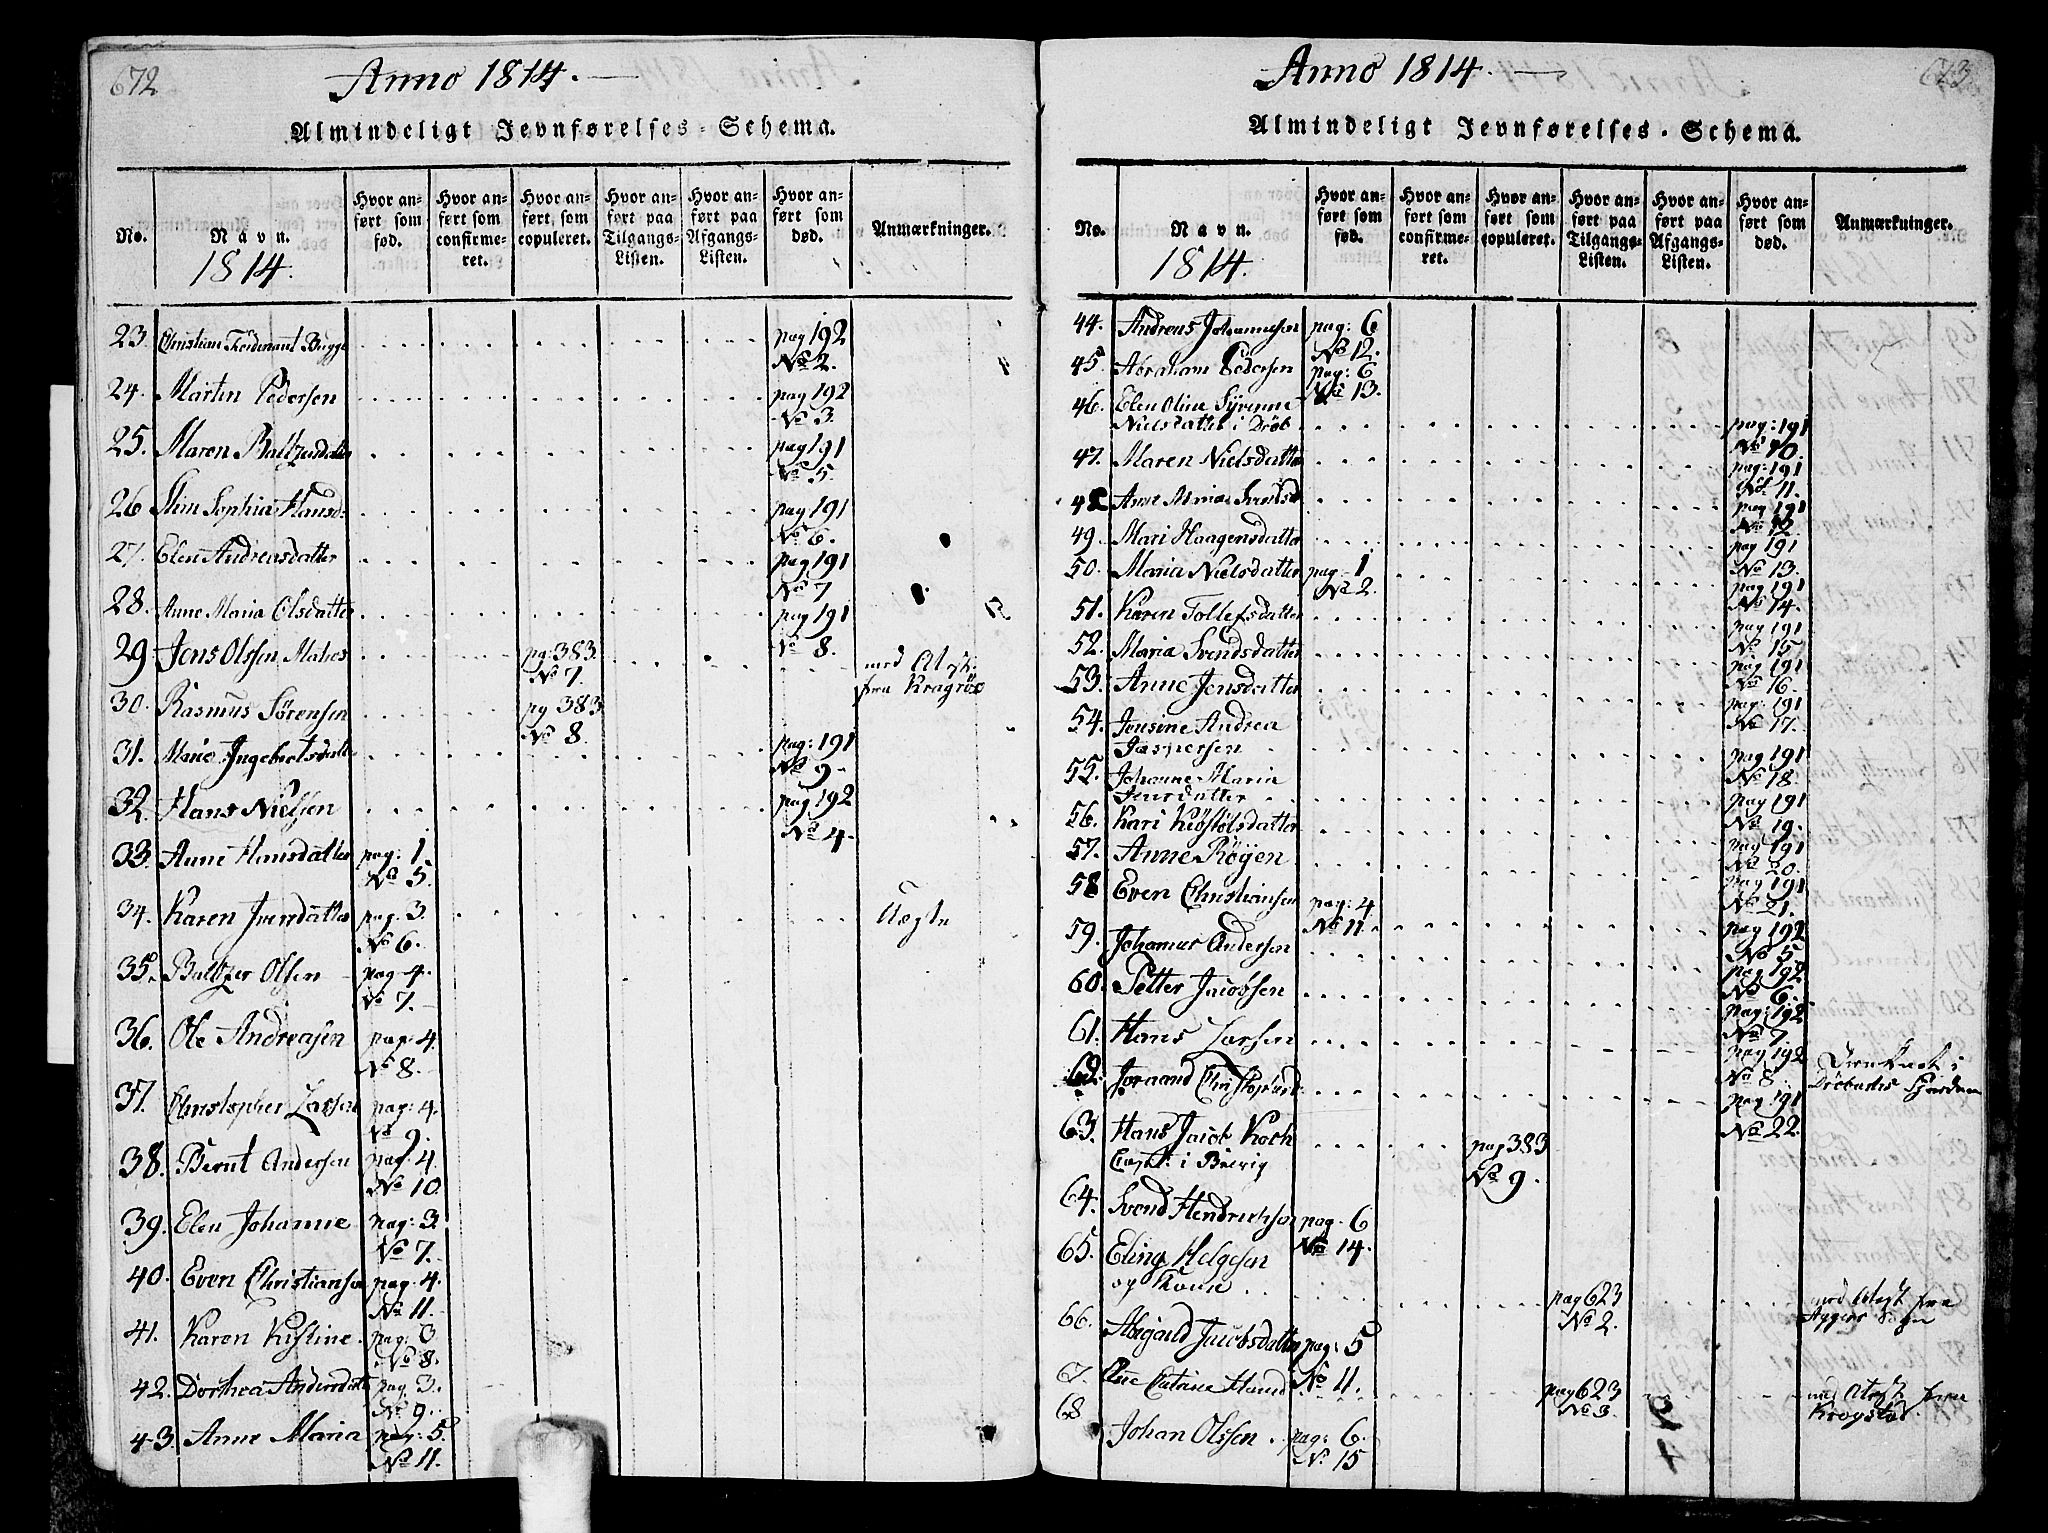 672
Anno 1814.
Almindeligt Jevnførelses-Schema.
No.
Navn.
1814.
Hvor anført som fød.
Hvor anført som confirmeret.
Hvor anført, som copuleret.
Hvor anført paa Tilgangs-Listen.
Hvor anført paa Afgangs-Listen.
Hvor anført som død.
Anmærkninger.
23. Christian Ferdinant Bugge pag 192
No 2.
24. Martin Pedersen pag 192
No 3.
25. Maren Baltzersdatter pag 191
No 5.
26 Sophia Hansd: pag 191
No 6.
27. Elen Andreasdatter pag 191
No 7
28. Anne Maria Olsdatter pag 191
No 8.
29 Jens Olssen Matros pag: 383. med Atest:
No 7. fra Kragröe
30. Rasmus Sörensen pag 383
No 8.
31. Marie Ingebretsdatter pag: 191
No 9
32. Hans Nielsen pag 192
No 4.
33. Anne Hansdatter pag: 1.
No 5.
34. Karen Iversdatter pag. 3. Uægte
No 6.
35. Baltzer Olsen pag 4.
No 7.
36. Ole Andreasen pag. 4.
No 8.
37. Christopher Larsen pag: 4.
No 9.
38. Bernt Andersen pag. 4.
No 10.
39. Elen Johanne pag: 3.
No 7.
40. Even Christiansen pag. 4.
No 11.
41. Karen Kistine. pag: 3
No 8.
42. Dorthea Andersdatter pag. 3.
No 9.
43. Anne Maria pag: 5.
No 11.
673
Anno 1814.
Almindeligt Jevnførelses-Schema.
No.
Navn.
1814.
Hvor anført som fød.
Hvor anført som confirmeret.
Hvor anført som copuleret.
Hvor anført paa Tilgangs-Listen.
Hvor anført paa Afgangs-Listen.
Hvor anført som død.
Anmærkninger.
44. Andreas Johannesen pag: 6
No 12.
45. Abraham Pedersen pag: 6
No 13.
46. Elen Oline Syverine
Nielsdatter i Dröb pag: 191
No 10.
47. Maren Nielsdatter pag: 191
No 11.
48 Anne Maria Svendsd pag 191
No 12.
49. Mari Haagensdatter pag 191
No 13.
50. Maria Nielsdatter pag 1 pag 191
No 2. No 14.
51. Karen Tollefsdatter pag 191
No 15
52. Maria Svendsdatter pag 191
No 16.
53. Anne Jensdatter pag: 191
No 17.
54. Jensine Andrea
Jaspersen pag 191
No 18
55. Johanne Maria
Jensdatter pag 191
No 19.
56. Kari Kiöstölsdatter pag 191
No 20.
57. Anne Röyen pag 191
No 21.
58 Even Christiansen pag: 4 pag 192
No 11. No 5
59. Johannes Andersen pag 192
No 6.
60. Petter Jacobsen pag: 192
No 7
61. Hans Larsen pag 192
No 8
62. Joraand pag 191
No 22.
Druknet i
Dröbachs Fjorden
63. Hans Jacob Koch pag 383
Capt: i Brevig No 9.
64. Svend Hendrichsen pag. 6
No 14.
65. Eling Helgesen
og Kone pag 623
No 2.
med Atest fra
Aggers Sogn
66. Abigaild Jacobsdatter pag: 5
No 11.
67. Catrine pag 623 med Atest fra
No 3. Krogstad.
68 Johan Olssen pag: 6.
No 15